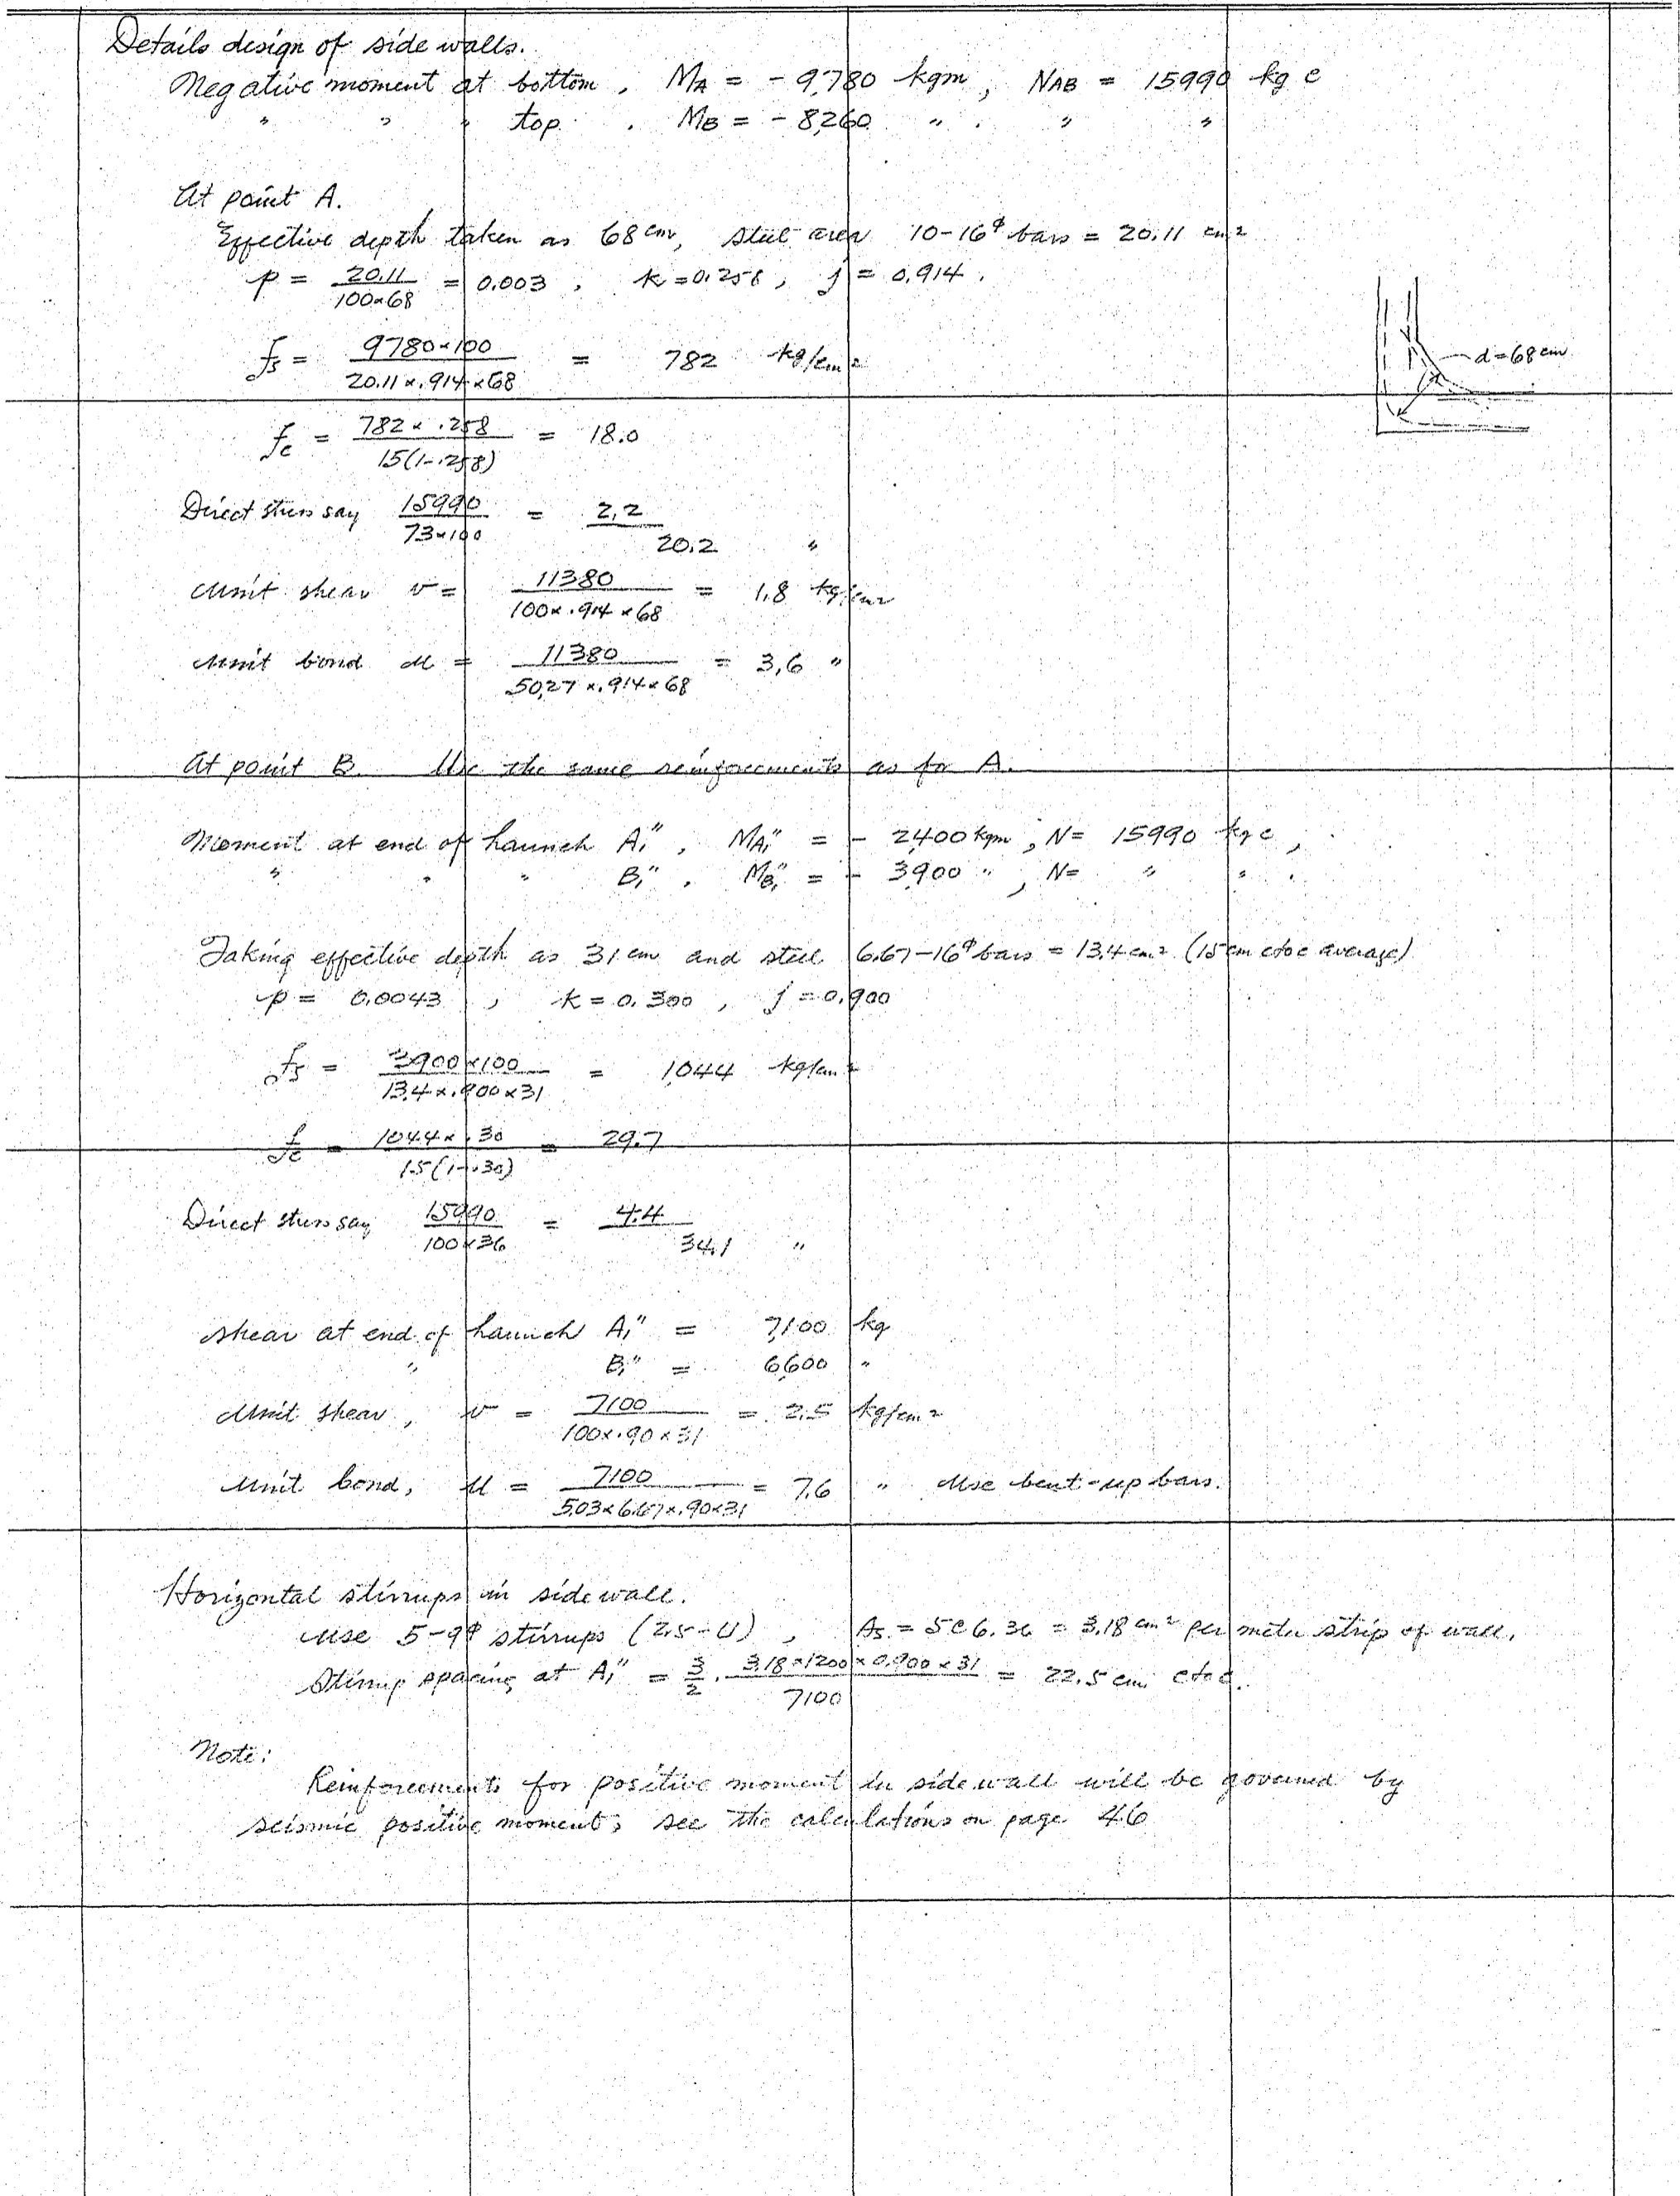 Details design of side walls.
Negative moment at bottom, MA = - 9,780 kgm, NAB = 15990 kg c
" " " top. MB = - 8,260 " . " "
At point A.
Effective depth taken as 68 cm, steel area 10-16φ bars = 20.11 cm2
p = 20.11 / 100×68 = 0.003, k = 0.258, j = 0.914.
fs = 9780×100 / 20.11×.914×68 = 782 kg/cm2
d=68 cm
fc = 782×.258 / 15(1-.258) = 18.0
Direct stress say 15990 / 73×100 = 2.2
20.2 "
Unit shear v = 11380 / 100×.914×68 = 1.8 kg/cm2
Unit bond u = 11380 / 50.27×.914×68 = 3.6 "
At point B. Use the same reinforcements as for A.
Moment at end of haunch A1", MA1" = - 2,400 kgm, N= 15990 kg c,
" " " B1", MB1" = - 3,900 ", N= " " "
Taking effective depth as 31 cm and steel 6.67-16φ bars = 13.4 cm2 (15 cm ctoc average)
p = 0.0043, k = 0.300, j = 0.900
fs = 3900×100 / 13.4×.900×31 = 1,044 kg/cm2
fc = 1044×.30 / 15(1-.30) = 29.7
Direct stress say 15990 / 100×36 = 4.4
34.1 "
Shear at end of haunch A1" = 7,100 kg
" B1" = 6,600 "
Unit shear, v = 7100 / 100×.90×31 = 2.5 kg/cm2
Unit bond, u = 7100 / 5.03×6.67×.90×31 = 7.6 " Use bent-up bars.
Horizontal stirrups in side wall.
Use 5-9φ stirrups (2.5-U), As = 5@6.36 = 3.18 cm2 per meter strip of wall.
Stirrup spacing at A1" = 3/2 . 3.18×1200×0.900×31 / 7100 = 22.5 cm ctoc.
Note:
Reinforcements for positive moment in side wall will be governed by
seismic positive moment; see the calculations on page 46